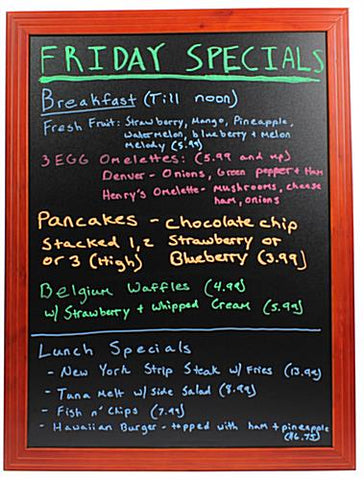 FRIDAY SPECIALS
Breakfast (Till noon)
Fresh Fruit: Strawberry, Mango, Pineapple,
Watermelon, blueberry & Melon
Melody (5.99)
3 EGG Omelettes: (5.99 and up)
Denver - Onions, Green pepper & Ham
Henry's Omelette - Mushrooms, cheese
ham, onions
Pancakes - Chocolate chip
Stacked 1, 2 Strawberry or
or 3 (High) Blueberry (3.99)
Belgium Waffles (4.99)
w/ Strawberry & Whipped Cream (5.99)
Lunch Specials
- New York Strip Steak w/ Fries (13.99)
- Tuna Melt w/ Side Salad (8.99)
- Fish n' Chips (7.99)
- Hawaiian Burger - topped with ham & pineapple
($6.75)